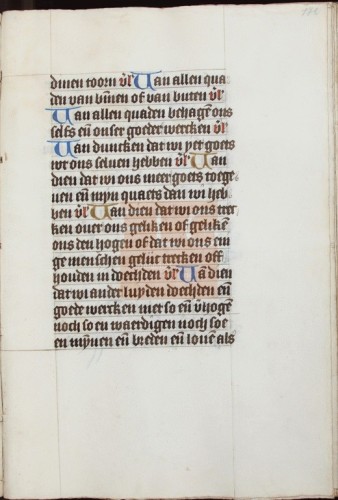 dinen toorn v̄l Uan allen qua
den van binnen of van buten v̄l
Uan allen quaden behagē ons
selfs en̄ onser goeder wercken v̄l
Uan duncken dat wi yet goets
wt ons seluen hebben v̄l Uan
dien dat wi ons meer goets toege
uen en̄ myn quaets dan wi heb
ben v̄l Uan dien dat wi ons tree
ken ouer ons geliken of gelikē
ons den hogen of dat wi ons en
ge menschen geluc trecken off
houden in doechden v̄l Uā dien
dat wi ander luyden doechden en̄
goede wercken niet so en̄ v̄hogē
noch so en waerdigen noch soe
en mȳnen en̄ breden en̄ louē als